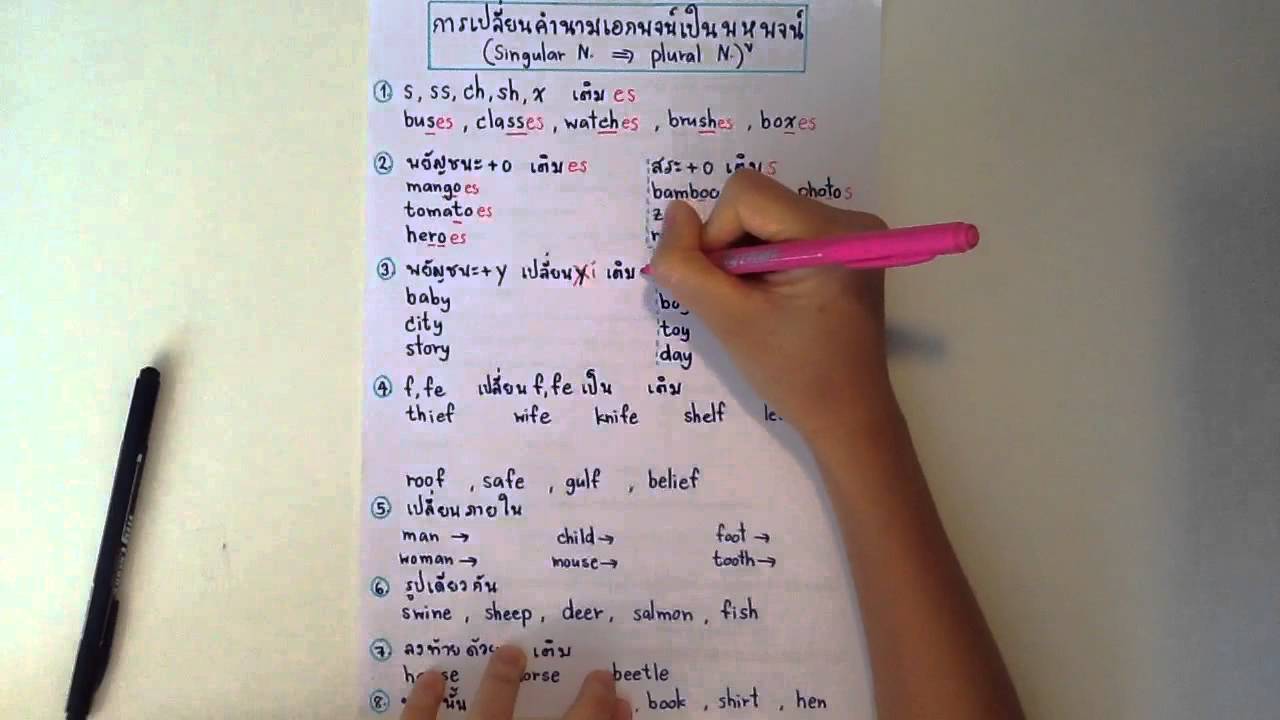 การเปลี่ยนคำนามเอกพจน์เป็นพหูพจน์
(Singular N. ⇒ plural N.)
① s, ss, ch, sh, x เติม es
buses , classes , watches , brushes , boxes
② พยัญชนะ + o เติม es
mangoes
tomatoes
heroes
สระ + o เติม s
photos
③ พยัญชนะ + y เปลี่ยน y i เติม
baby
city
story
toy
day
④ f, fe เปลี่ยน f, fe เป็น เติม
thief wife knife shelf
roof , safe , gulf , belief
⑤ เปลี่ยนภายใน
man → child → foot →
woman → mouse → tooth →
⑥ รูปเดียวกัน
swine , sheep , deer , salmon , fish
⑦ ลงท้ายด้วย เติม
beetle
⑧ , book , shirt , hen